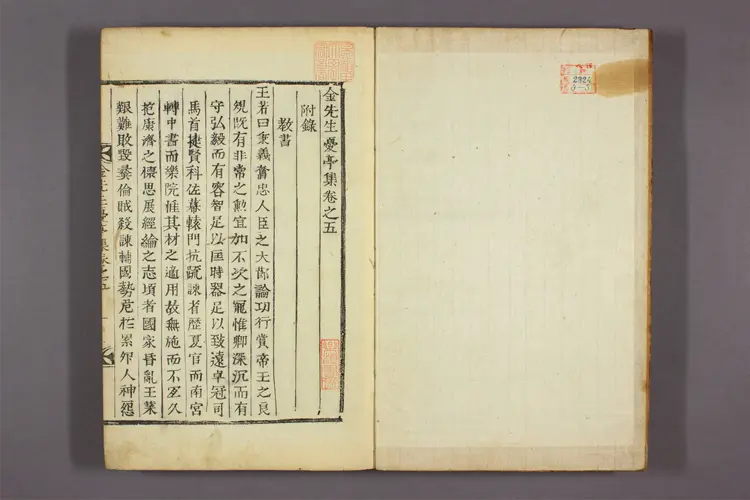 金先生憂亭集卷之五
附錄
教書
王若曰秉義奮忠人臣之大節論功行賞帝王之良
規旣有非常之勲宜加不次之寵惟卿深沉而有
守弘毅而有容智足以匡時器足以致遠卓冠司
馬首捷賢科佐幕轅門抗疏諫者歷夏官而南宮
轉中書而樂院惟其材之適用故無施而不至久
抱康濟之懷思展經綸之志頃者國家昏亂王業
艱難敢毀彝倫戕殺諫輔國勢危於累卵人神怨
2924